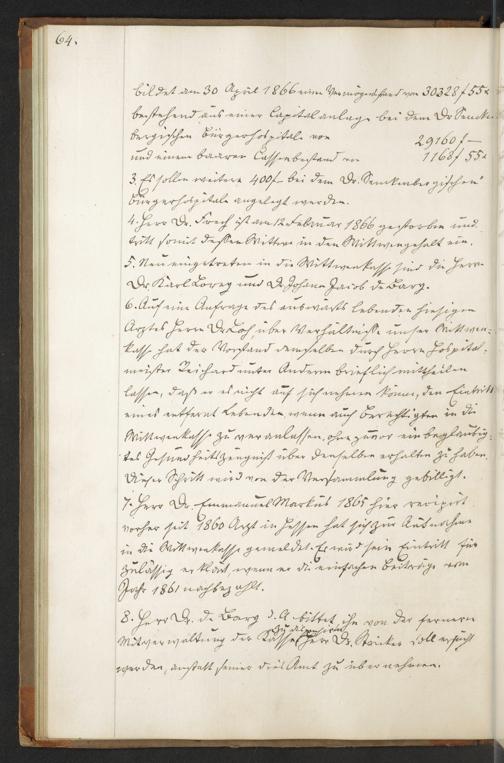 64.
bildet am 30 April 1866 einen Vermögensstand von 30328 f 55 x
bestehend aus einer Capitalanlage bei dem Dr Sencken
bergischen Bürgerhospitale von 29160 f —
und einem baaren Cassenbestand von 1168 f 55 x
3. Es sollen weitere 400 f – bei dem Dr. Senckenbergischen
Bürgerhospitale angelegt werden.
4. Herr Dr. Foresch ist am 12 Februar 1866 gestorben und
tritt somit dessen Wittwe in den Wittwengehalt ein.
5. Neu eingetreten in die Wittwenkasse sind die Herrn
Dr Karl Lorey und Dr Johann Jacob de Bary.
6. Auf eine Anfrage des auswärts lebenden hiesigen
Arztes Herrn Dr über Verhältnisse unser Wittwen-
kasse hat der Vorstand demselben durch Herrn Hospital-
meister Reichard unter Anderm brieflich mittheilen
lassen, daß er es nicht auf sich nehmen könne, den Eintritt
eines entfernt Lebenden wenn auch Berechtigten in die
Wittwenkasse zu veranlassen, ohne zuvor ein beglaubig-
tes Gesundheitszeugniß über denselben erhalten zu haben.
Dieser Schritt wird von der Versammlung gebilligt.
7. Herr Dr. Emmanuel Markus 1865 hier recipirt
vorher seit 1860 Arzt in Hessen hat sich zur Aufnahme
in die Wittwenkasse gemeldet. Es wird sein Eintritt für
zulässig erklärt, wenn er die einfachen Beiträge vom
Jahr 1861 nachbezahlt.
8. Herr Dr. de Bary d. A. bittet, ihn von der fernern
Mitverwaltung der Casse zu dispensiren Herr Dr. Stricker soll ersucht
werden, anstatt seiner dies Amt zu übernehmen.